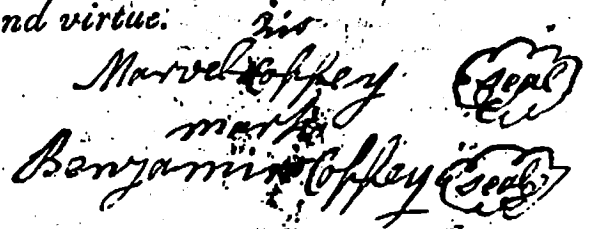 nd virtue.
his
Marvel Coffey seal
mark
Benjamin Coffey seal